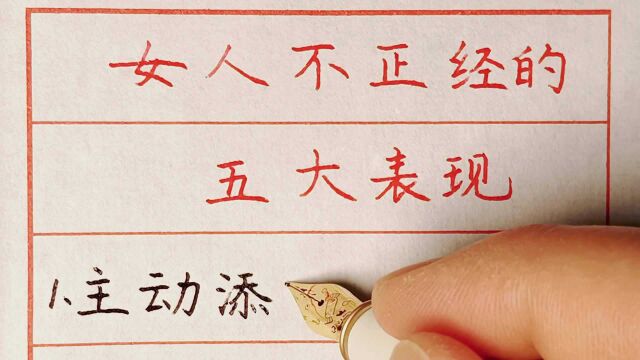 女人不正经的
五大表现
1、主动添